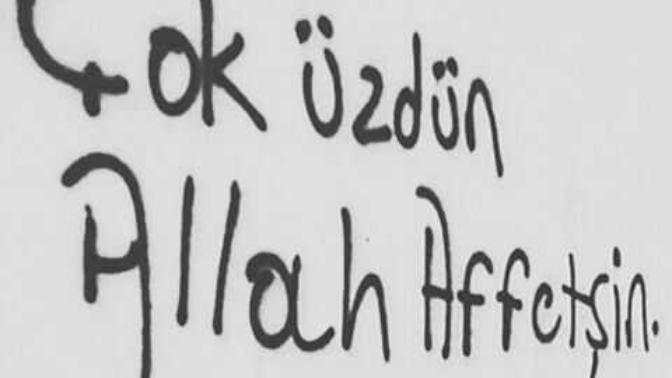 Çok üzdün
Allah Affetsin.